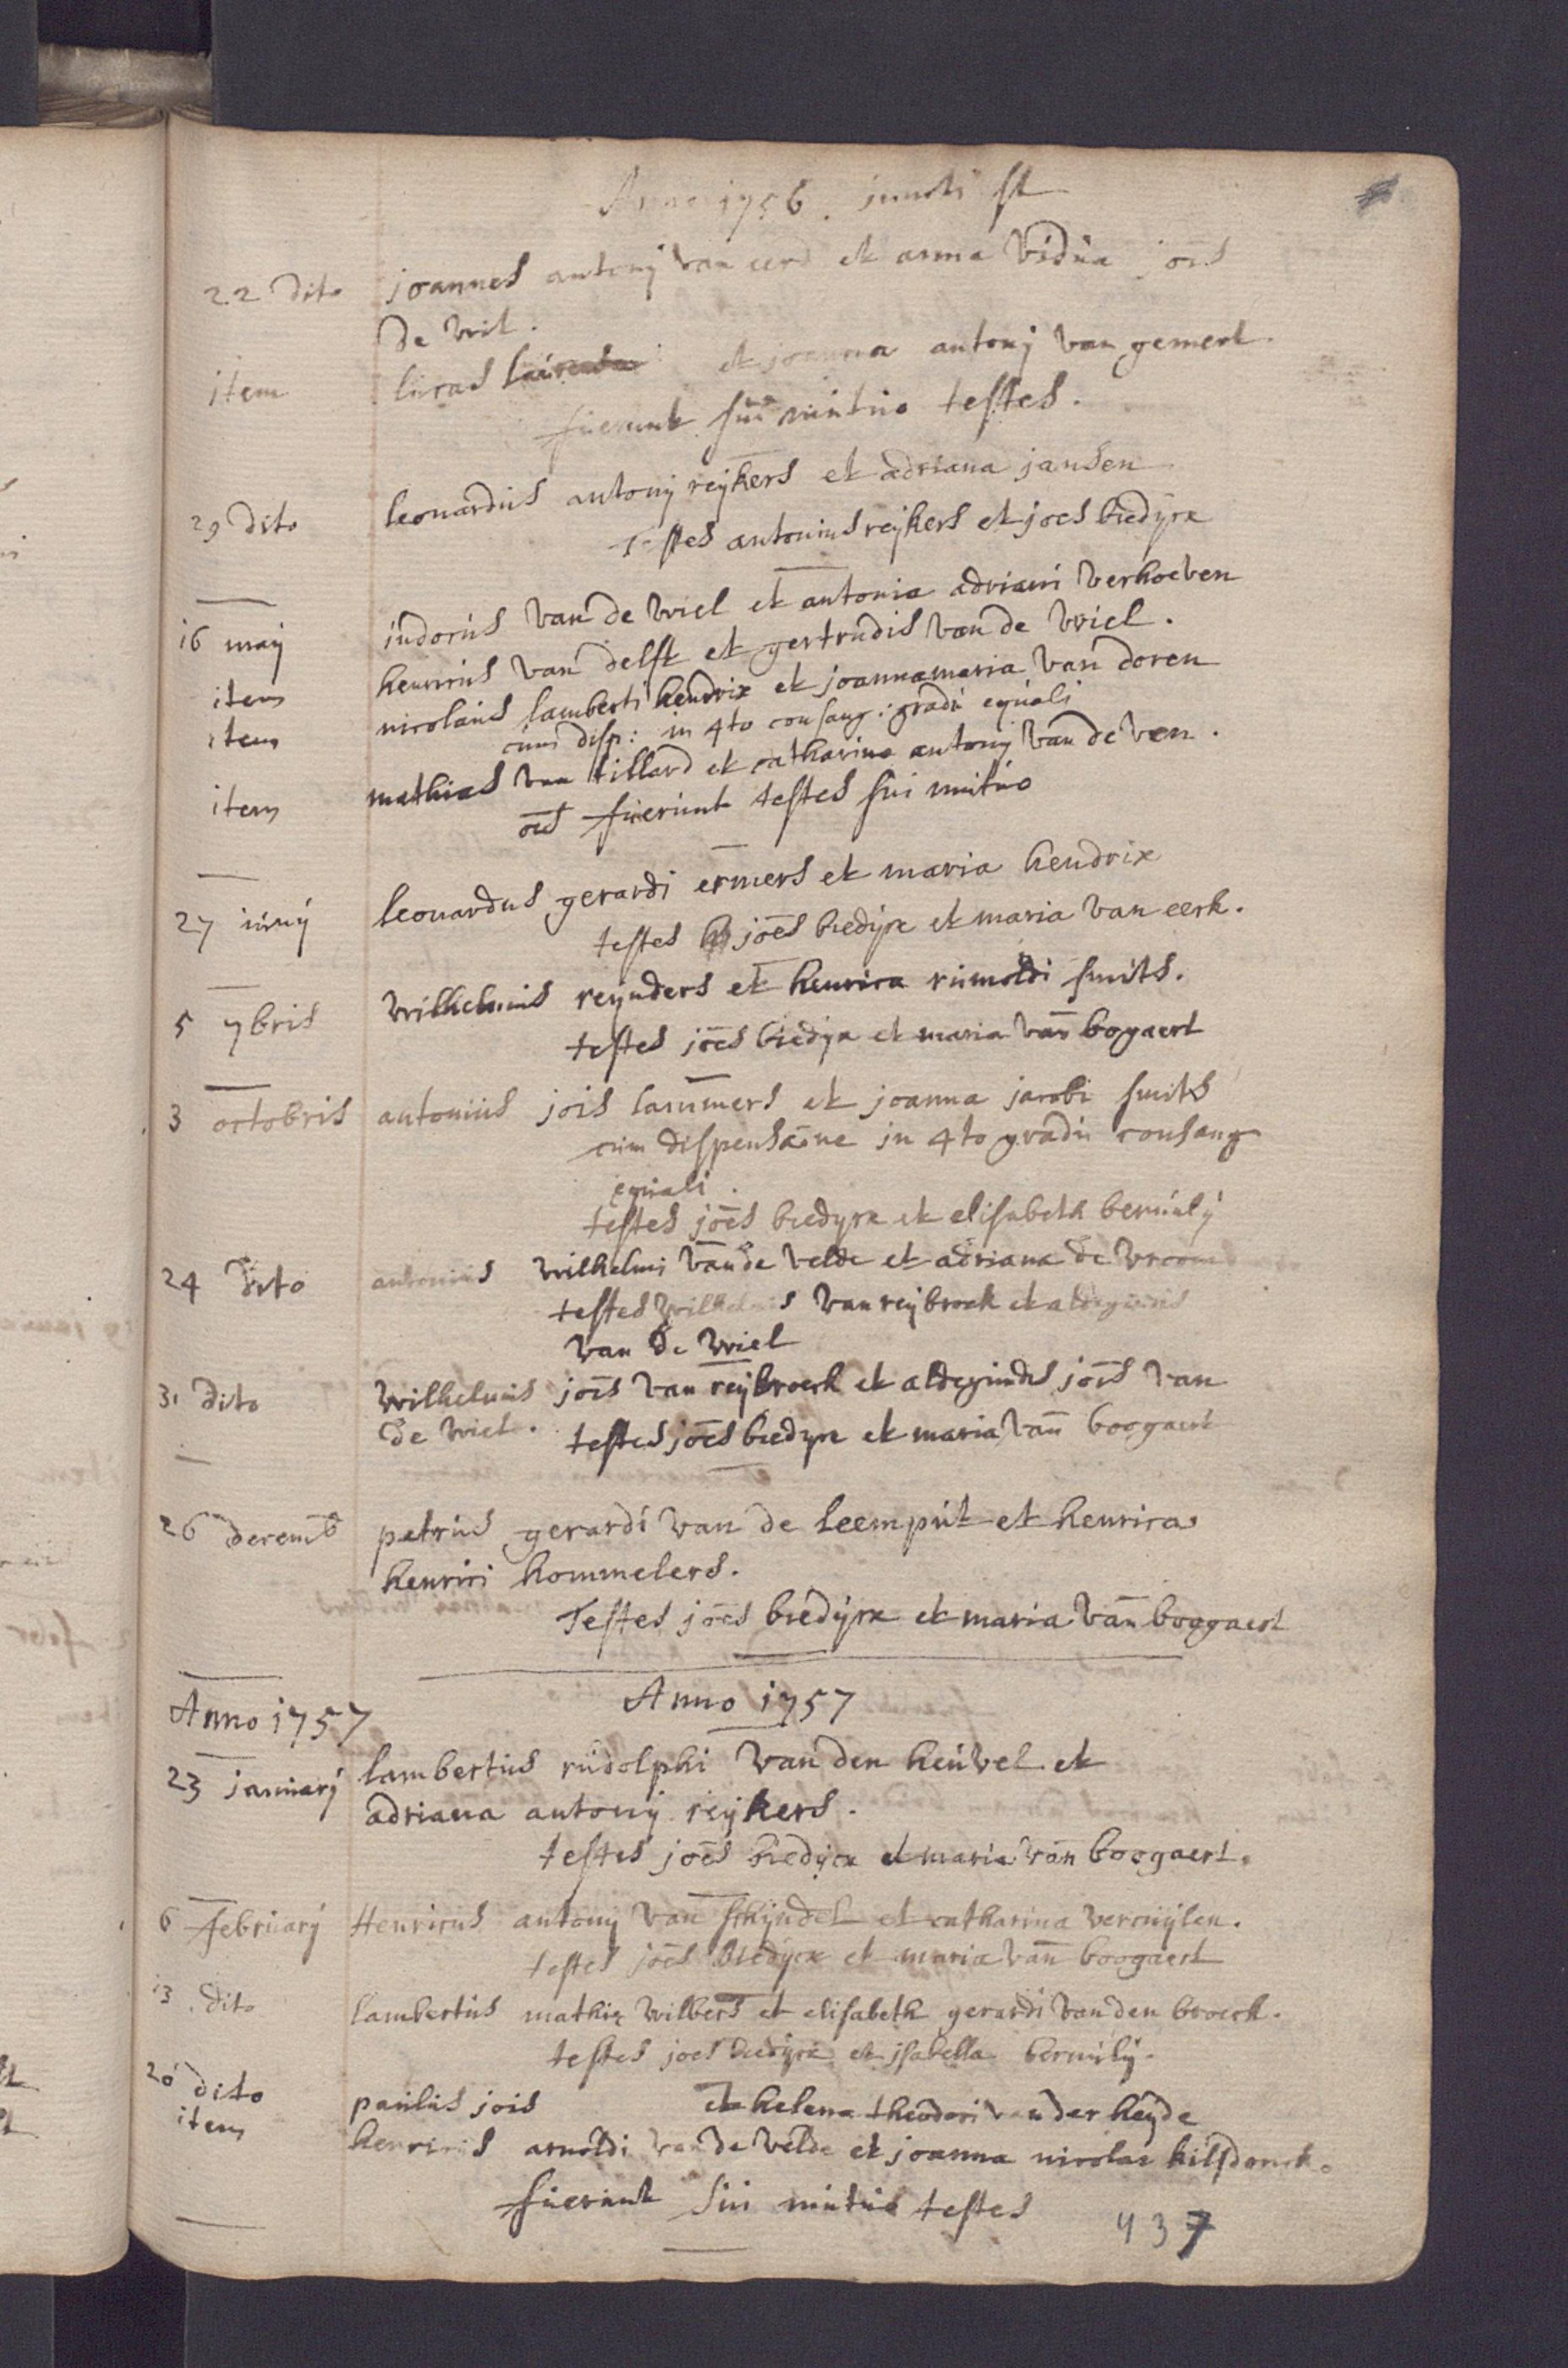 Anno 1756. juncti st
22 dito joannes antonij van eerd et anna vidua jois
de wit.
item lucas et joanna antonij van gemert.
fuerunt sui mutuo testes.
29 dito leonardus antonij reijkers et adriana jansen
testes antonius reijkers et joes bredijx
16 maij judocus van de wiel et antonia adriani verhoeven
item henricus van delft et gertrudis van de wiel.
item nicolaus lamberti hendrix et joannamaria van doren
cum disp: in 4to consang: gradu equali
item mathias van tillard et catharina antonij van de ven.
oes fuerunt testes sui mutuo
27 junij leonardus gerardi ermers et maria hendrix
testes joes bredijx et maria van eerk.
5 7bris wilhelmus reijnders et henrica rumoldi smits.
testes joes bredijx et maria van bogaert
3 octobris antonius jois lammers et joanna jacobi smits
cum dispensaone in 4to gradu consang
equali.
testes joes bredijx et elisabeth
24 dito antonius wilhelmi van de velde et adriana de vroom
testes wilhelmus van reijbroek et aldegundis
van de wiel
31 dito wilhelmus jois van reijbroeck et aldegundis jois van
de wiel. testes joes bredijx et maria van boogaert
26 decemb petrus gerardi van de leemput et henrica
henrici hommelers.
Testes joes bredijx et maria van boogaert
Anno 1757
Anno 1757
23 januarij lambertus rudolphi van den heuvel et
adriana antonij reijkers.
testes joes bredijx et maria van boogaert.
6 februarij Henricus antonij van schijndel et catharina vercuijlen.
testes joes bredijcx et maria van boogaert
13 dito lambertus mathiae wilbers et elisabeth gerardi van den broeck.
testes joes bredijcx et isabella
20 dito paulus jois et helena theodori van der heijde
item henricus arnoldi van de velde et joanna nicolai kilsdonck.
fuerunt sui mutuo testes
437